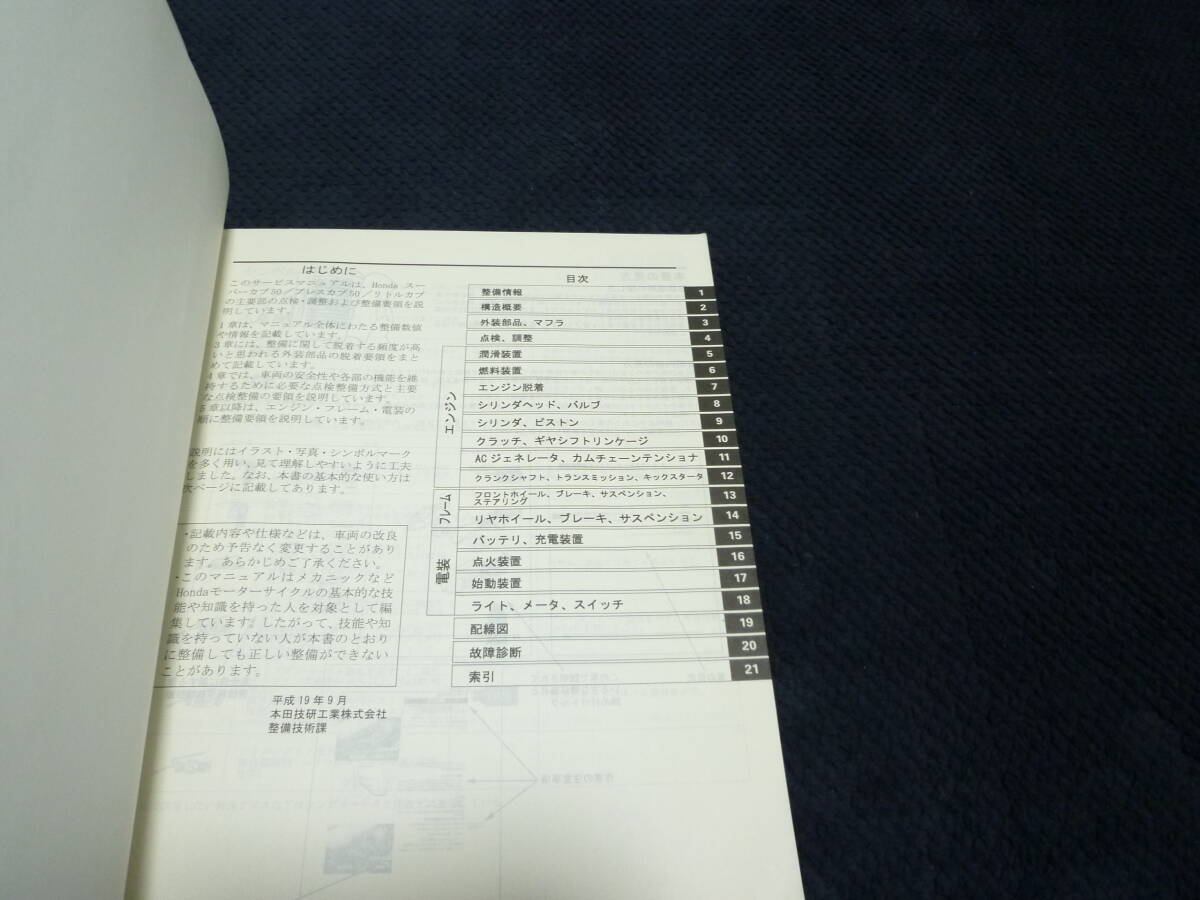 はじめに
このサービスマニュアルは、Honda スー
パーカブ50／プレスカブ50／リトルカブ
の主要部の点検・調整および整備要領を説
明しています。
1章は、マニュアル全体にわたる整備数値
や情報を記載しています。
3章には、整備に関して脱着する頻度が高
いと思われる外装部品の脱着要領をまと
めて記載しています。
4章では、車両の安全性や各部の機能を維
持するために必要な点検整備方式と主要
な点検整備の要領を説明しています。
5章以降は、エンジン・フレーム・電装の
順に整備要領を説明しています。
説明にはイラスト・写真・シンボルマーク
を多く用い、見て理解しやすいように工夫
しました。なお、本書の基本的な使い方は
次ページに記載してあります。
・記載内容や仕様などは、車両の改良
のため予告なく変更することがあり
ます。あらかじめご了承ください。
・このマニュアルはメカニックなど
Hondaモーターサイクルの基本的な技
能や知識を持った人を対象として編
集しています。したがって、技能や知
識を持っていない人が本書のとおり
に整備しても正しい整備ができない
ことがあります。
平成19年9月
本田技研工業株式会社
整備技術課
目次
整備情報 1
構造概要 2
外装部品、マフラ 3
点検、調整 4
エンジン
潤滑装置 5
燃料装置 6
エンジン脱着 7
シリンダヘッド、バルブ 8
シリンダ、ピストン 9
クラッチ、ギヤシフトリンケージ 10
ACジェネレータ、カムチェーンテンショナ 11
クランクシャフト、トランスミッション、キックスタータ 12
フレーム
フロントホイール、ブレーキ、サスペンション、
ステアリング 13
リヤホイール、ブレーキ、サスペンション 14
電装
バッテリ、充電装置 15
点火装置 16
始動装置 17
ライト、メータ、スイッチ 18
配線図 19
故障診断 20
索引 21